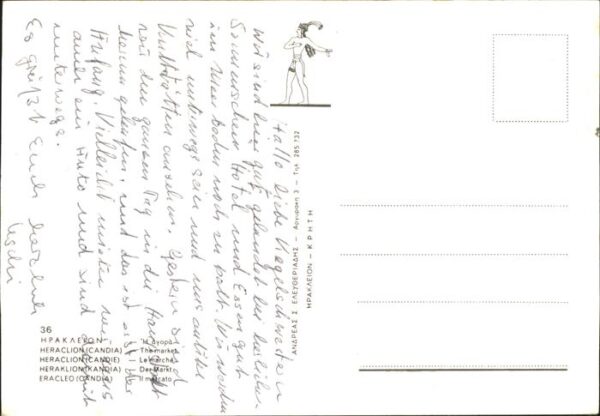 Hallo liebe Kegelschwestern
Wir sind hier gut gelandet bei herrlichem
Sonnenschein. Hotel und Essen gut
nur zum baden noch zu kalt. Wir werden
viel unterwegs sein und uns antike
Kultstätten ansehen. Gestern sind
wir den ganzen Tag in die
herum gelaufen, und das ist erst der
Anfang. Vielleicht mieten wir uns
auch ein Auto und sind damit
unterwegs.
Es grüßt Euch herzlich
36
ΗΡΑΚΛΕΙΟΝ - Ἡ ἀγορά
HERACLION (CANDIA) - The market
HERACLION (CANDIE) - Le marché
HERAKLION (KANDIA) - Der Markt
ERACLEO (CANDIA) - Il mercato
ΑΝΔΡΕΑΣ Σ. ΕΛΕΥΘΕΡΙΑΔΗΣ - Αργυράκη 3 - Τηλ. 285.732
ΗΡΑΚΛΕΙΟΝ - ΚΡΗΤΗ